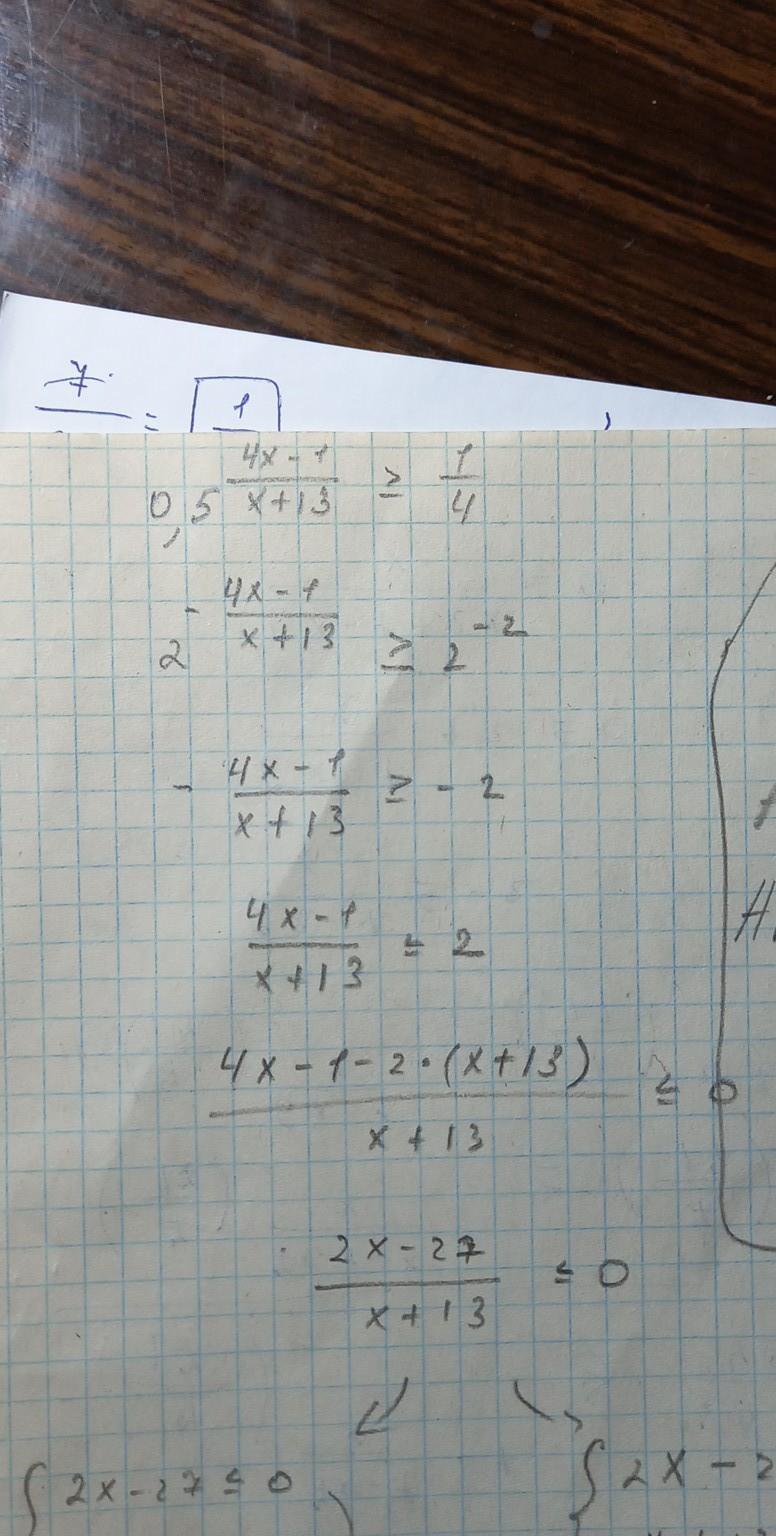 7 = 1
0,5^((4x-1)/(x+13)) ≥ 1/4
2^(-(4x-1)/(x+13)) ≥ 2^(-2)
- (4x-1)/(x+13) ≥ -2
(4x-1)/(x+13) ≤ 2
(4x-1-2·(x+13))/(x+13) ≤ 0
(2x-27)/(x+13) ≤ 0
{ 2x-27 ≤ 0 { 2x - 2